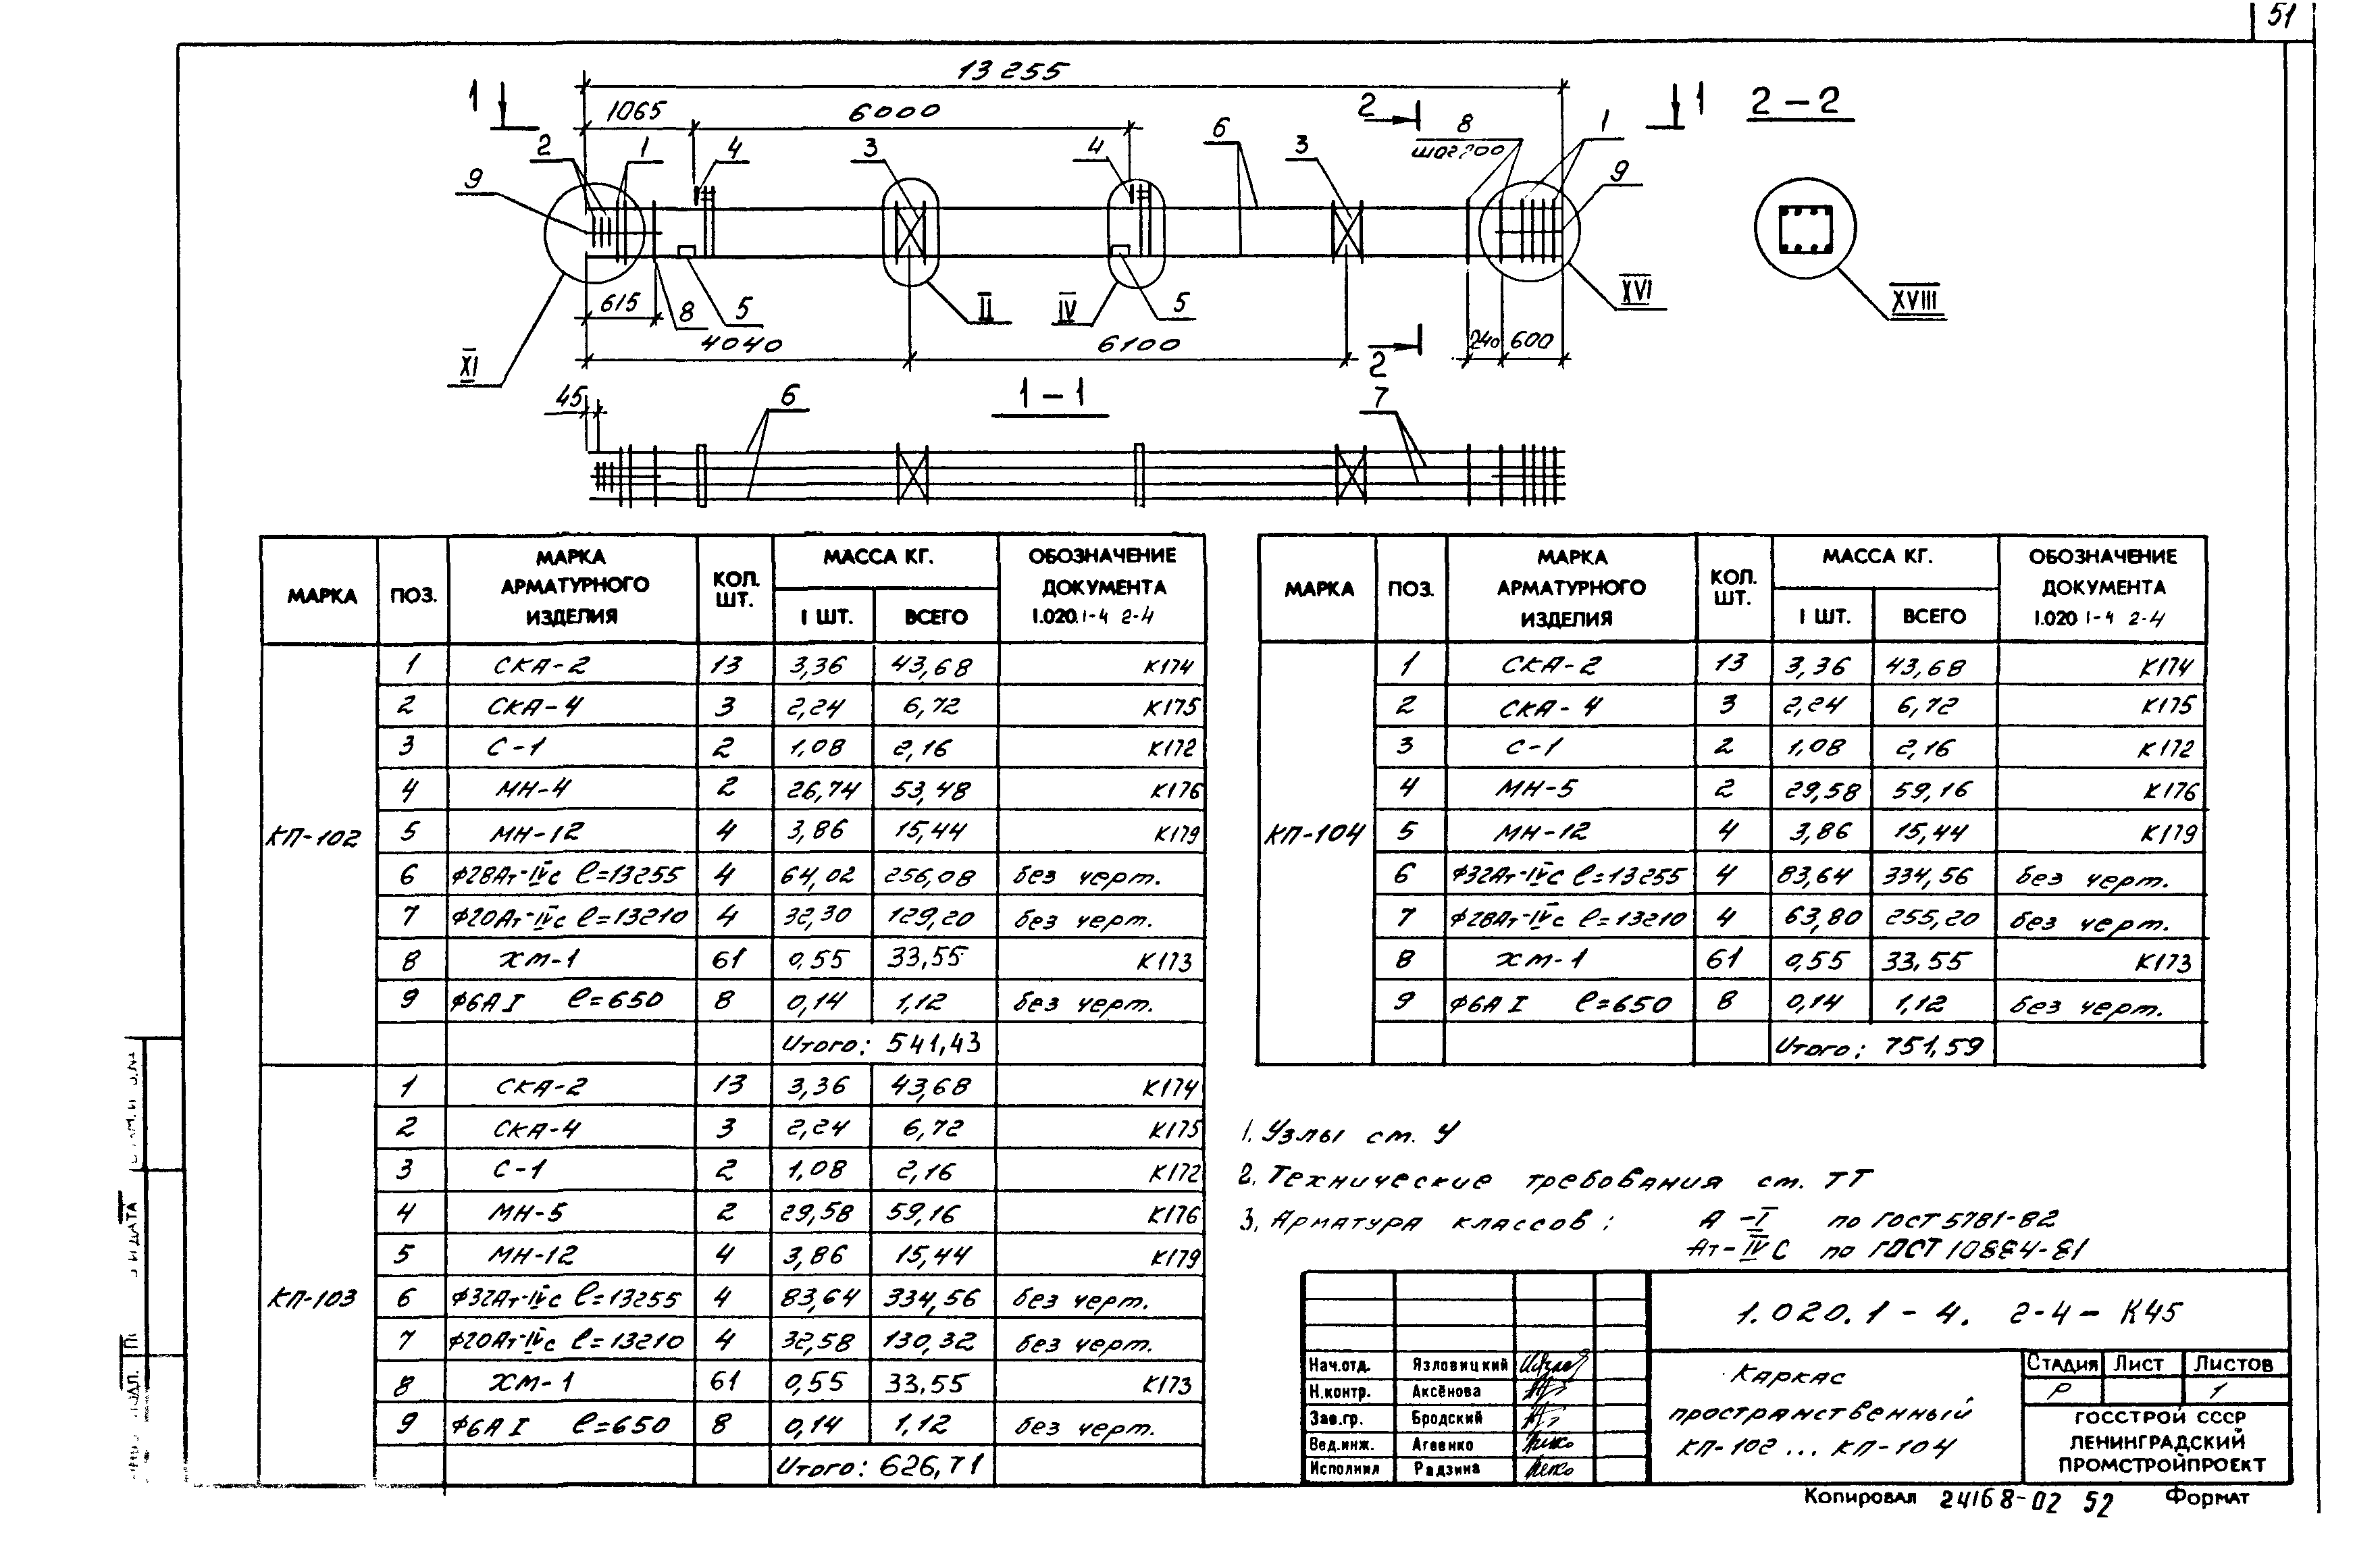 51
13 255
1065
6000
1
2
1
2 – 2
2
1
4
3
4
6
3
8
шаг 200
1
9
9
615
8
5
II
IV
5
XVI
XVIII
XI
4040
6100
2
240
600
1 – 1
45
6
7
МАРКА ПОЗ. МАРКА АРМАТУРНОГО ИЗДЕЛИЯ КОЛ. ШТ. МАССА КГ. ОБОЗНАЧЕНИЕ ДОКУМЕНТА 1.020.1-4 2-4
1 ШТ. ВСЕГО
КП-102
1 СКА-2 13 3,36 43,68 К174
2 СКА-4 3 2,24 6,72 К175
3 С-1 2 1,08 2,16 К172
4 МН-4 2 26,74 53,48 К176
5 МН-12 4 3,86 15,44 К179
6 Ф28Ат-IVс ℓ=13255 4 64,02 256,08 без черт.
7 Ф20Ат-IVс ℓ=13210 4 32,30 129,20 без черт.
8 ХМ-1 61 0,55 33,55 К173
9 Ф6А I ℓ=650 8 0,14 1,12 без черт.
Итого: 541,43
КП-103
1 СКА-2 13 3,36 43,68 К174
2 СКА-4 3 2,24 6,72 К175
3 С-1 2 1,08 2,16 К172
4 МН-5 2 29,58 59,16 К176
5 МН-12 4 3,86 15,44 К179
6 Ф32Ат-IVс ℓ=13255 4 83,64 334,56 без черт.
7 Ф20Ат-IVс ℓ=13210 4 32,58 130,32 без черт.
8 ХМ-1 61 0,55 33,55 К173
9 Ф6А I ℓ=650 8 0,14 1,12 без черт.
Итого: 626,71
МАРКА ПОЗ. МАРКА АРМАТУРНОГО ИЗДЕЛИЯ КОЛ. ШТ. МАССА КГ. ОБОЗНАЧЕНИЕ ДОКУМЕНТА 1.020 1-4 2-4
1 ШТ. ВСЕГО
КП-104
1 СКА-2 13 3,36 43,68 К174
2 СКА-4 3 2,24 6,72 К175
3 С-1 2 1,08 2,16 К172
4 МН-5 2 29,58 59,16 К176
5 МН-12 4 3,86 15,44 К179
6 Ф32Ат-IVс ℓ=13255 4 83,64 334,56 без черт.
7 Ф28Ат-IVс ℓ=13210 4 63,80 255,20 без черт.
8 ХМ-1 61 0,55 33,55 К173
9 Ф6А I ℓ=650 8 0,14 1,12 без черт.
Итого: 751,59
1. Узлы см. У
2. Технические требования см. ТТ
3. Арматура классов: А-I по ГОСТ 5781-82
Ат-IVС по ГОСТ 10884-81
1.020.1-4. 2-4-К45
Нач.отд. Язловицкий
Н.контр. Аксёнова
Зав.гр. Бродский
Вед.инж. Агеенко
Исполнил Радзина
Каркас
пространственный
КП-102 ... КП-104
Стадия Лист Листов
Р 1
ГОССТРОЙ СССР
ЛЕНИНГРАДСКИЙ
ПРОМСТРОЙПРОЕКТ
Копировал 24168-02 52 Формат